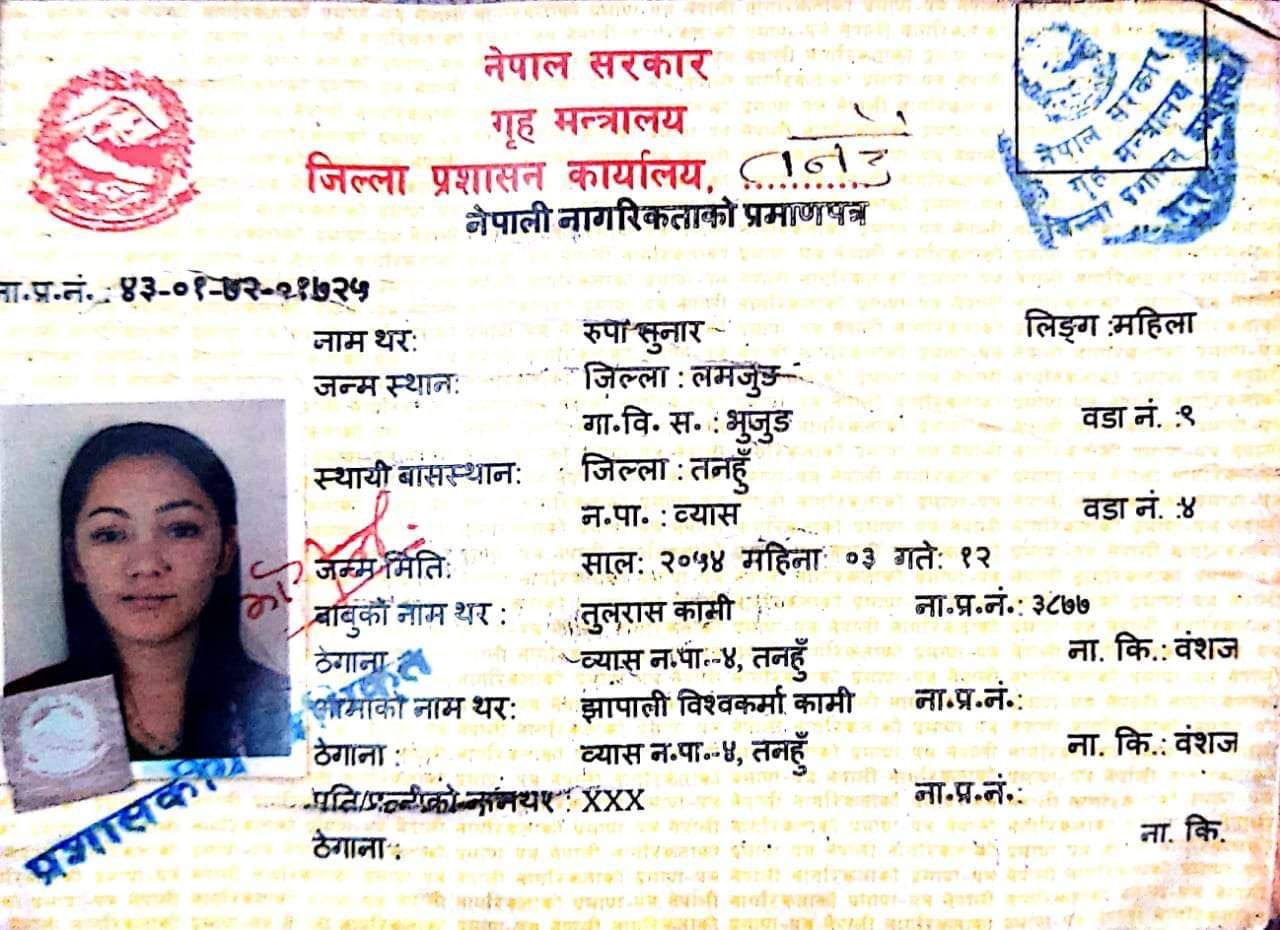 नेपाल सरकार
गृह मन्त्रालय
जिल्ला प्रशासन कार्यालय,
नेपाली नागरिकताको प्रमाणपत्र
नेपाल सरकार
गृह मन्त्रालय
जिल्ला प्रशासन
ना.प्र.नं. : ४३-०१-७२-
नाम थर: रुपा सुनार लिङ्ग :महिला
जन्म स्थान: जिल्ला : लमजुङ
गा.वि. स. : भुजुङ वडा नं. :९
स्थायी बासस्थान: जिल्ला : तनहुँ
न.पा. : व्यास वडा नं. :४
जन्म मिति: साल: २०५४ महिना: ०३ गते: १२
बाबुको नाम थर : तुलरास कामी ना.प्र.नं.: ३८७७
ठेगाना : व्यास न.पा.-४, तनहुँ ना. कि.: वंशज
आमाको नाम थर: झापाली विश्वकर्मा कामी ना.प्र.नं.:
ठेगाना : व्यास न.पा.-४, तनहुँ ना. कि.: वंशज
पति/पत्नीको नामथर : XXX ना.प्र.नं.:
ठेगाना : ना. कि.